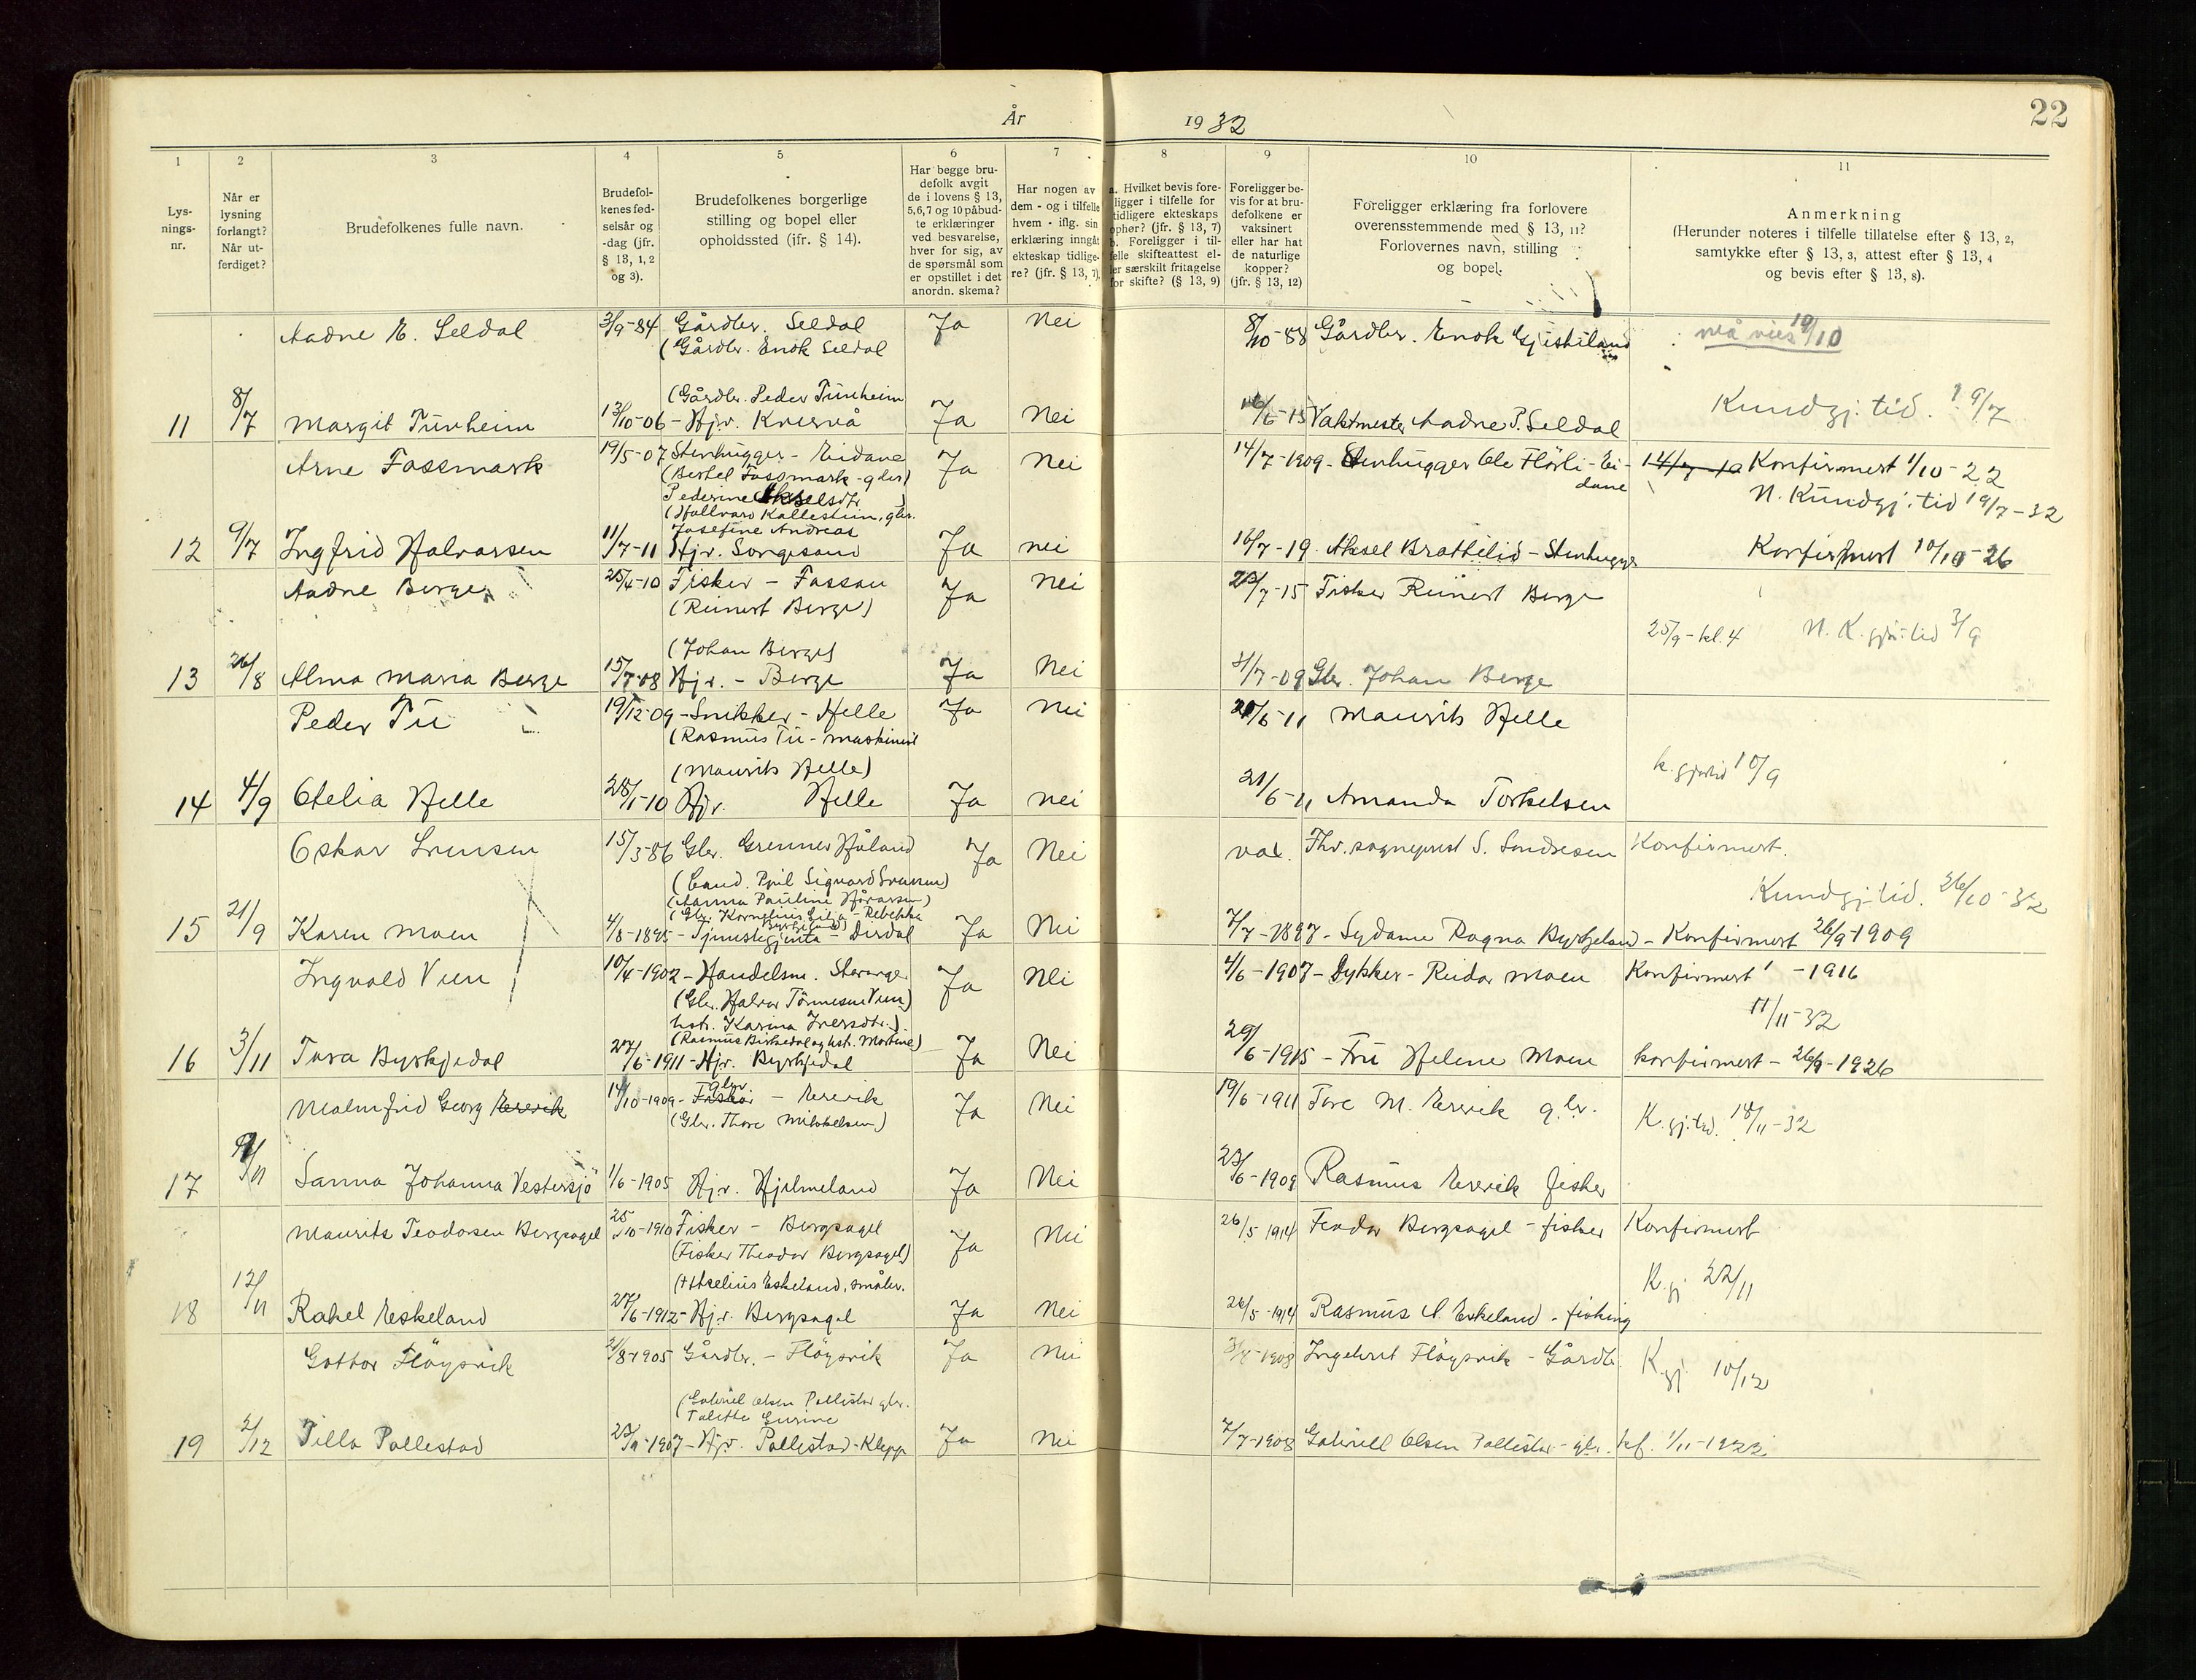 22
År 1932
1 2 3 4 5 6 7 8 9 10 11
Lys-
nings-
nr.
Når er
lysning
forlangt?
Når ut-
ferdiget?
Brudefolkenes fulle navn.
Brudefol-
kenes fød-
selsår og
-dag (jfr.
§ 13, 1, 2
og 3).
Brudefolkenes borgerlige
stilling og bopel eller
opholdssted (jfr. § 14).
Har begge bru-
defolk avgit
de i lovens § 13,
5,6,7 og 10 påbud-
te erklæringer
ved besvarelse,
hver for sig, av
de spørsmål som
er opstillet i det
anordn. skema?
Har nogen av
dem - og i tilfelle
hvem - iflg. sin
erklæring inngått
ekteskap tidlige-
re? (jfr. § 13, 7).
a. Hvilket bevis fore-
ligger i tilfelle for
tidligere ekteskaps
ophør? (jfr. § 13, 7)
b. Foreligger i til-
felle skifteattest el-
ler særskilt fritagelse
for skifte? (§ 13, 9)
Foreligger be-
vis for at bru-
defolkene er
vaksinert
eller har hat
de naturlige
kopper?
(jfr. § 13, 12)
Foreligger erklæring fra forlovere
overensstemmende med § 13, 11?
Forlovernes navn, stilling
og bopel.
Anmerkning
(Herunder noteres i tilfelle tillatelse efter § 13, 2,
samtykke efter § 13, 3, attest efter § 13, 4
og bevis efter § 13, 8).
Aadne E. Seldal 3/9-84 Gårdbr. Seldal Ja Nei 8/10-88 Gårdbr. Enok Gjishiland må vies 19/10
(Gårdbr. Enok Seldal
(Gårdbr. Peder Tunheim
11 8/7 Margit Tunheim 13/10-06 - Hjv. Knesvå Ja Nei Vaktmester Aadne P. Seldal Kundgj. tid. 19/7
Arne Fossmark 19/5-07 Stenhugger - Eidane Ja Nei 14/7-1909 - Stenhugger Ole Flörli - Ei-
dane Konfirmert 1/10-22
(Bertel Fossmark - gbr)
Pederine Akselsdtr. N. Kundgj. tid 19/7-32
(Hallvard Kallestein, gbr.
Josefine Andreas
12 9/7 Ingfrid Halvorsen 11/7-11 Hjv. Songesand Ja nei 16/7-19. Aksel Brattelid - Stenhugger Konfirmert 10/10-26
Aadne Berge 25/4-10 Fisker - Fossan Ja Nei 23/7-15 Fisker Reinert Berge
(Reinert Berge)
25/9 - kl. 4 N. K.gjs. tid 3/9
(Johan Berge)
13 26/8 Alma Maria Berge 15/7-08 Hjv. - Berge Ja Nei 31/7-09 Gbr. Johan Berge
Peder Tu 19/12-09 - Snikker - Helle Ja Nei 20/6-11 Maurits Helle
(Rasmus Tu - maskinist
(Maurits Helle) k. gjstid 10/9
14 4/9 Otelia Helle 28/1-10 Hjv. Helle Ja nei 21/6-11 Amanda Torkelsen
Oskar Svensen 15/3-86 Gbr. Grennes Håland Ja Nei vax. Fhv. sogneprest S. Sondresen Konfirmert.
(Cand. Phil Sigvard Svensen)
(Hanna Pauline Håvarsen) Kundgj. tid. 26/10-32
(Gbr. Kornelius Gilja - Rebekka
Byrkjeland)
15 21/9 Karen Moen 4/8-1895 - Tjenestegjenta - Dirdal Ja Nei 7/7-1897 - Sydame Ragna Byrkjeland - Konfirmert 26/9-1909
Ingvald Vien 10/4-1902 - Handelsm. Stavanger Ja Nei 4/6-1907 - Dykker - Reidar Moen Konfirmert - 1916
(Gbr. Halvor Tönnesen Vien)
hstr. Karina Iversdtr.) 11/11-32
(Rasmus Birkedal og hstr. Martine)
16 3/11 Tora Byrkjedal 27/6-1911 - Hjv. Byrkjedal Ja Nei 29/6-1915 - Fru Helene Moen konfirmert - 26/9-1926
Malmfrid Georg Erevik 14/10-1909 - Fisker gbr. - Erevik Ja Nei 19/6-1911 Tore M. Erevik gbr. K. gj. tid. 18/11-32
(Gbr. Thore Mikkelsen)
17 Sanna Johanna Vestersjö 1/6-1905 Hjv. Hjelmeland Ja Nei 23/6-1909 Rasmus Erevik fisker
Maurits Teodorsen Bergsagel 25/10-1910 Fisker - Bergsagel Ja Nei 26/5 1914 Teodor Bergsagel - fisker Konfirmert
(Fisker Theodor Bergsagel)
(+Aselius Eskeland, småbr. K.gj 22/11
18 12/11 Rahel Eskeland 27/6-1912 - Hjv. Bergsagel Ja Nei 26/5-1914 Rasmus A. Eskeland - fisking
Gottor Flöysvik 21/8-1905 Gårdbr. - Flöysvik Ja Nei Ingebret Flöysvik - Gårdb. K.gj. 10/12
(Gabriel Olsen Pollestad gbr.
Talette Gurine
19 2/12 Tilla Pollestad 23/9-1907 - Hjv. Pollestad - Klepp Ja Nei 7/7-1908 Gabriell Olsen Pollestad - gbr. kf. 1/11-1922